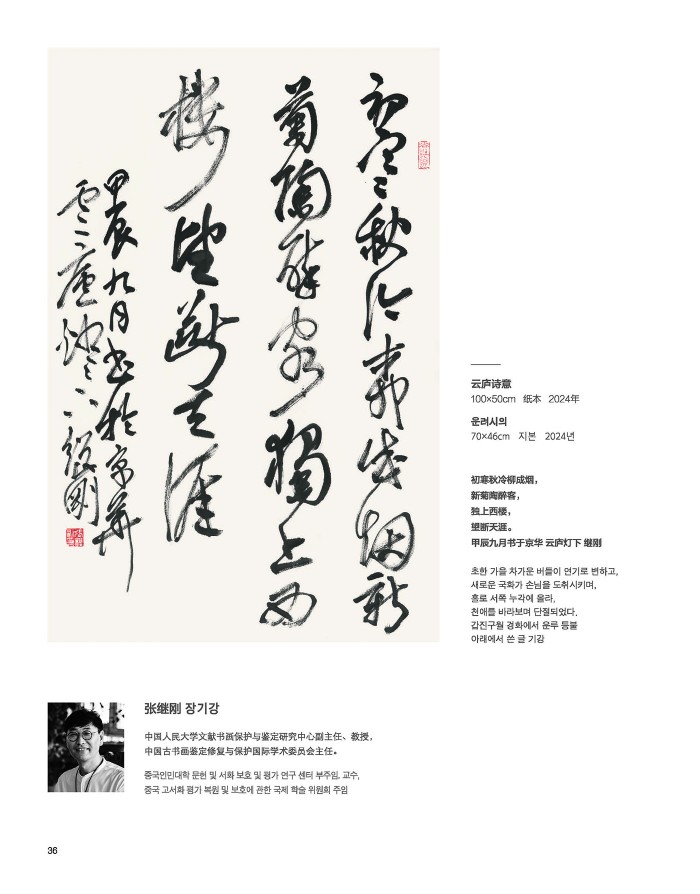 初寒秋冷柳成烟新
菊陶醉客獨上西
楼望断天涯
甲辰九月书於京華
雲廬灯下継刚
云庐诗意
100×50cm 纸本 2024年
운려시의
70×46cm 지본 2024년
初寒秋冷柳成烟，
新菊陶醉客，
独上西楼，
望断天涯。
甲辰九月书于京华 云庐灯下 继刚
초한 가을 차가운 버들이 연기로 변하고,
새로운 국화가 손님을 도취시키며,
홀로 서쪽 누각에 올라,
천애를 바라보며 단절되었다.
갑진구월 경화에서 운루 등불
아래에서 쓴 글 기강
张继刚 장기강
中国人民大学文献书画保护与鉴定研究中心副主任、教授，
中国古书画鉴定修复与保护国际学术委员会主任。
중국인민대학 문헌 및 서화 보호 및 평가 연구 센터 부주임, 교수,
중국 고서화 평가 복원 및 보호에 관한 국제 학술 위원회 주임
36